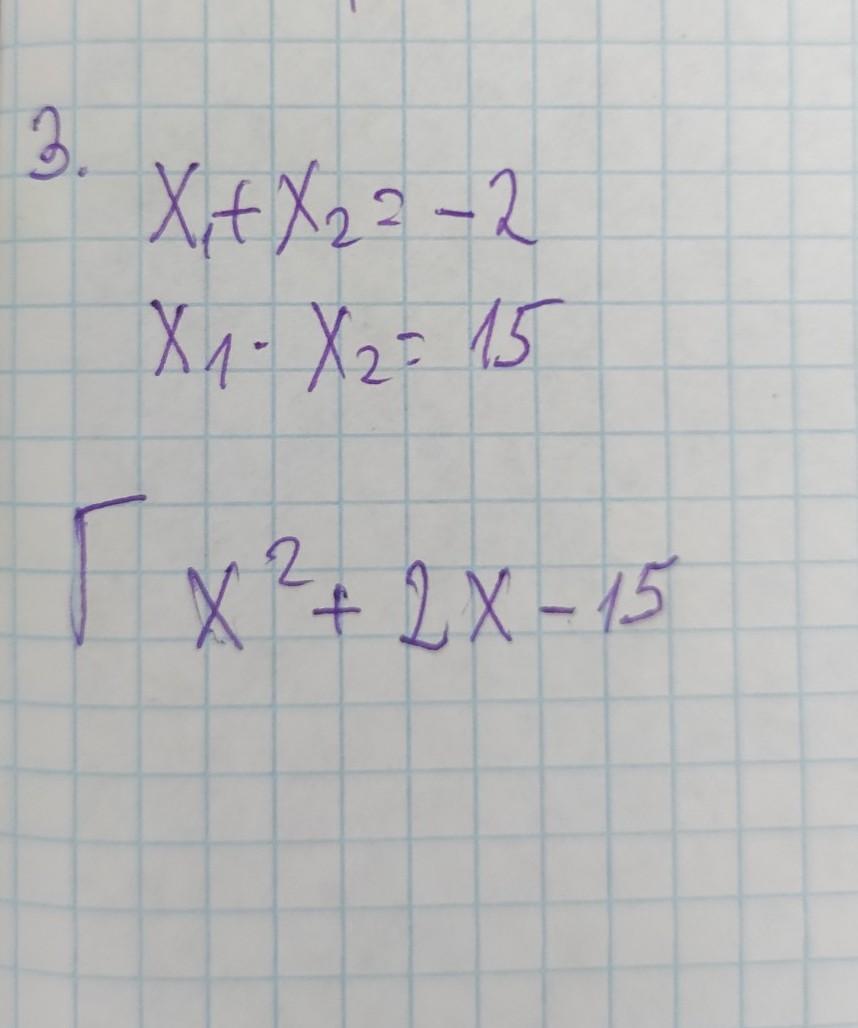 3.
X₁+X₂=-2
X₁·X₂=15
Г X²+2X-15